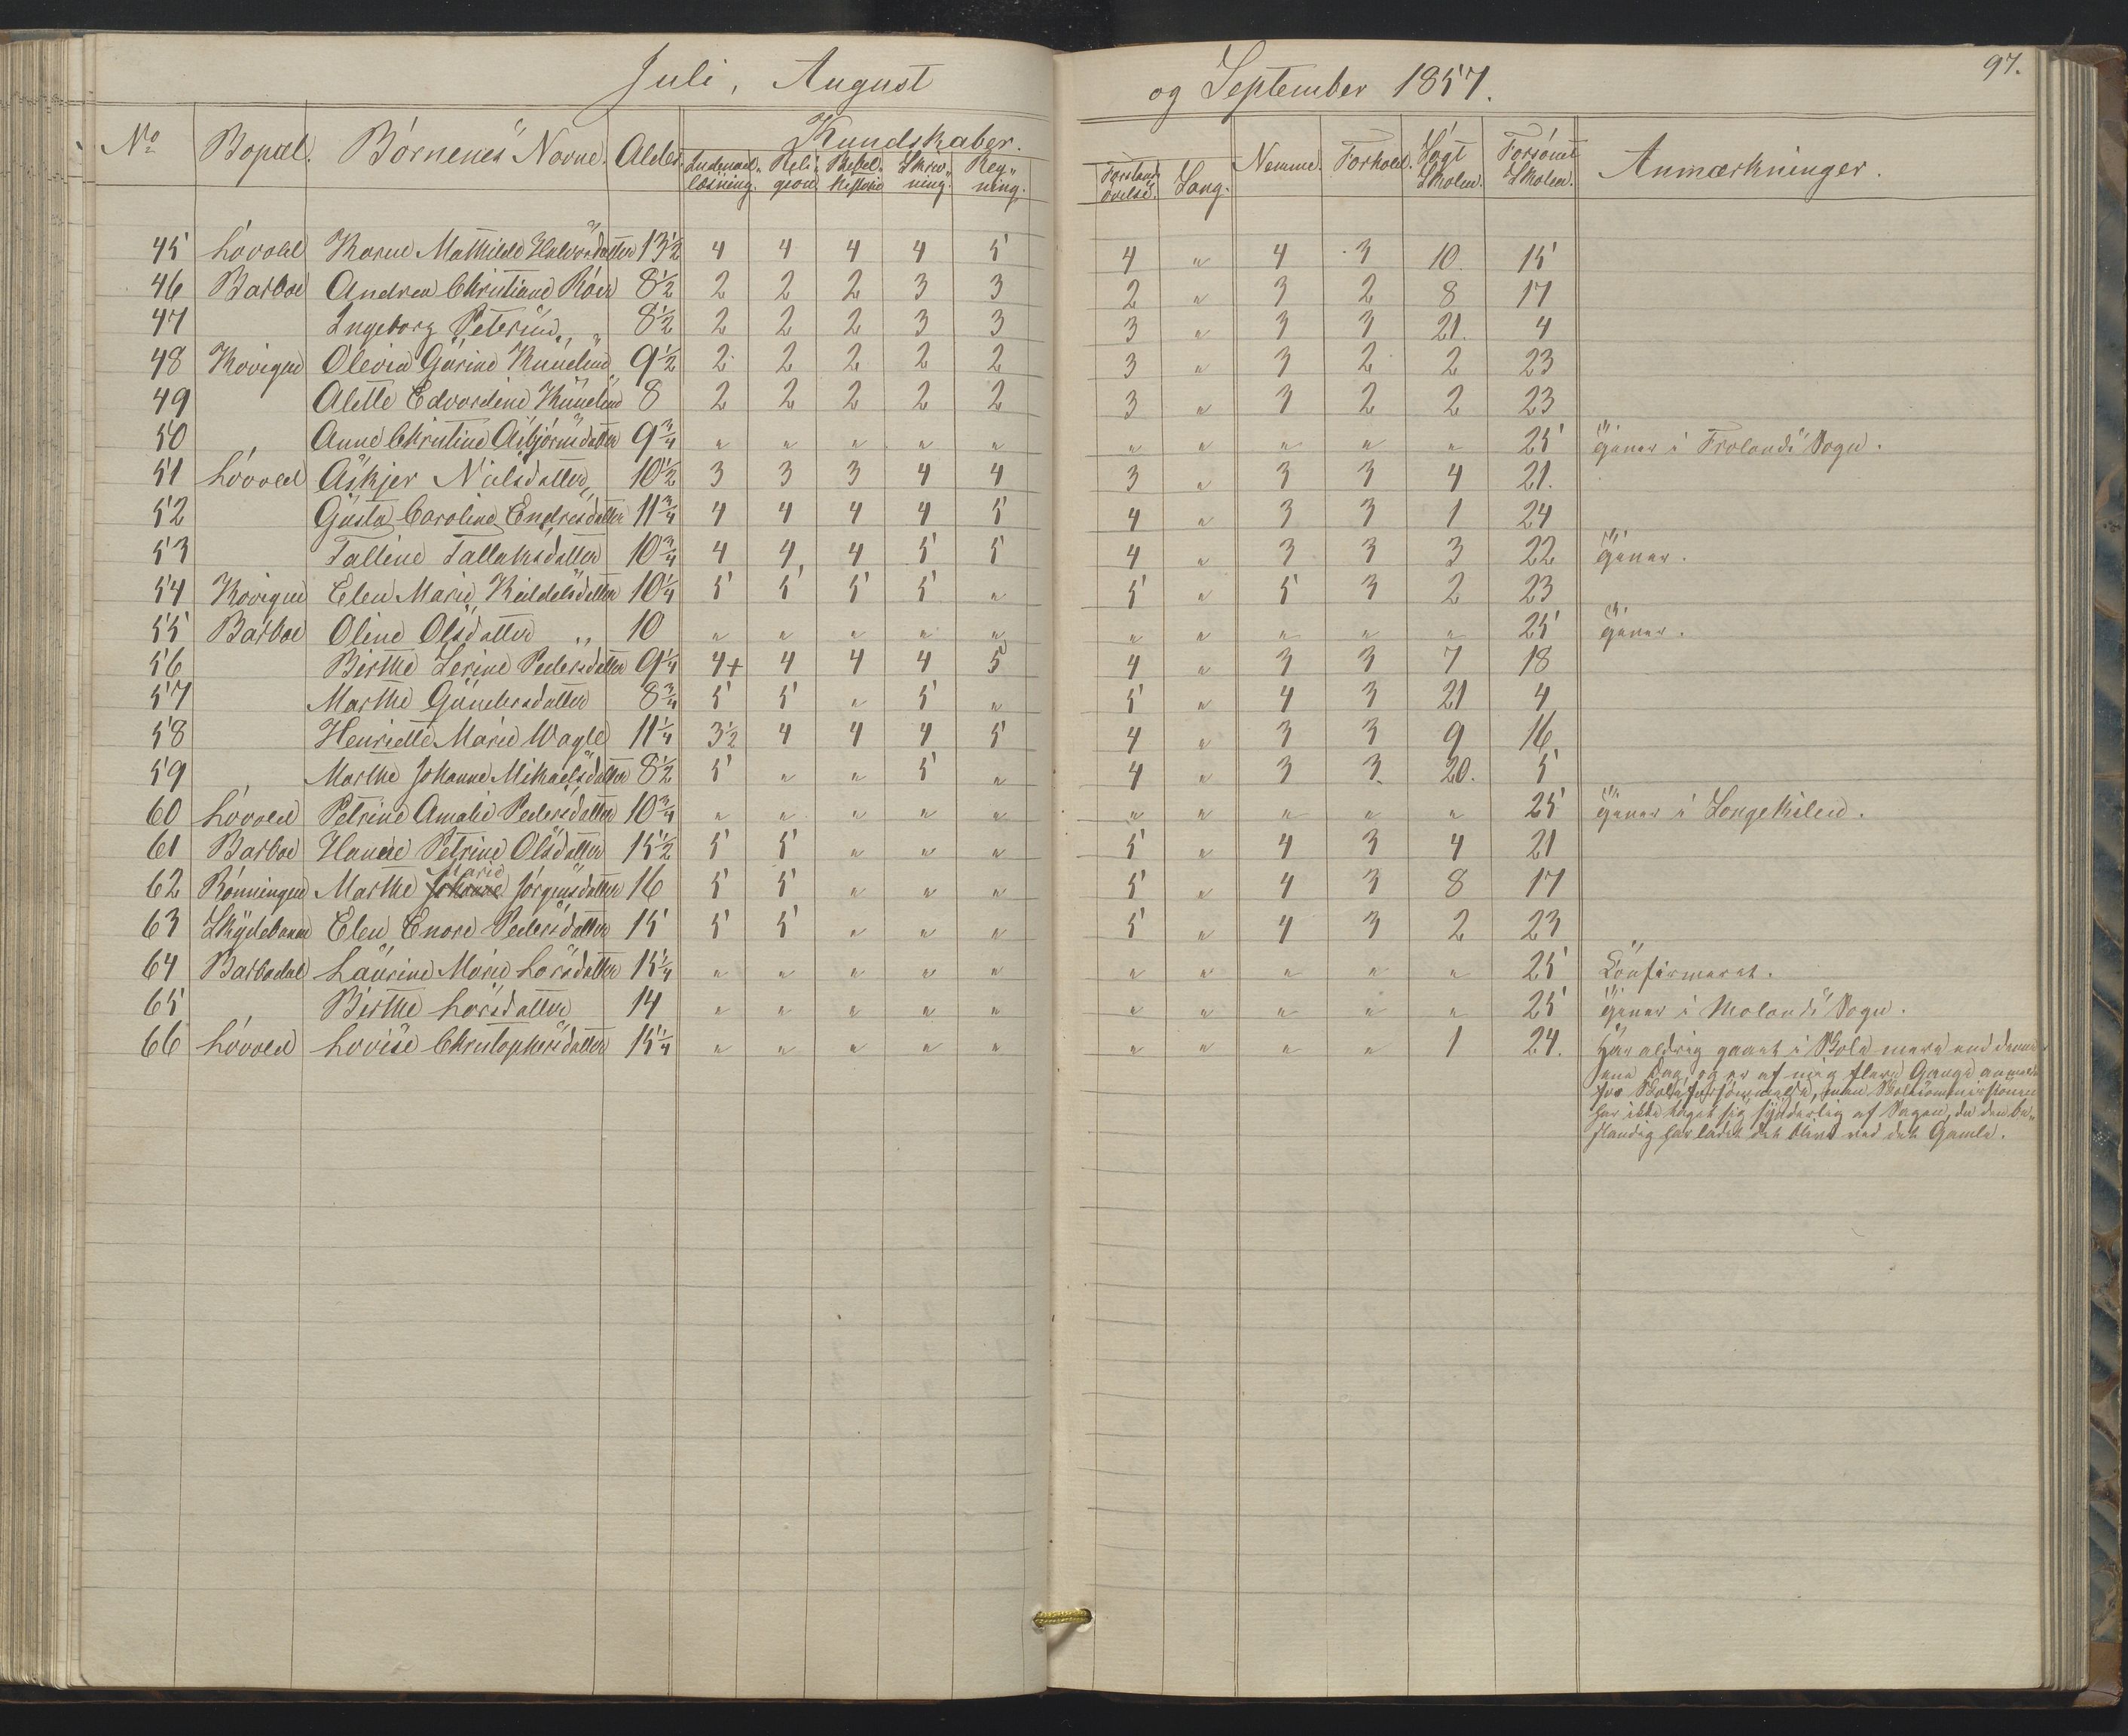 Juli, August og September 1857. 97.
No Bopæl. Börnenes Navne. Alder. Kundskaber. Nemme. Forhold. Søgt Skolen. Forsömt Skolen. Anmærkninger.
Indenad-læsning. Religion Bibel-historie Skrivning. Regning. Forstands övelse. Sang.
45 Lövold Karen Mathilde Halvorsdatter 13½ 4 4 4 4 5 4 " 4 3 10. 15
46 Barboe Andrea Christiane Röer 8½ 2 2 2 3 3 2 " 3 2 8 17
47 Ingeborg Petersen " 8½ 2 2 2 3 3 3 " 3 3 21. 4
48 Kovigen Olevia Gurine Knudsen 9½ 2 2 2 2 2 3 " 3 2 2 23
49 Alette Edvardine Knudsen 8 2 2 2 2 2 3 " 3 2 2 23
50 Anne Christine Asbjörnsdatter 9¾ " " " " " " " " " " 25 Tjener i Frolands Sogn.
51 Lövold Askjer Nielsdatter 10½ 3 3 3 4 4 3 " 3 3 4 21.
52 Gusta Caroline Endresdatter 11¾ 4 4 4 4 5 4 " 3 3 1 24
53 Talline Tallaksdatter 10¾ 4 4 4 5 5 4 " 3 3 3 22 Tjener.
54 Kovigen Elen Marie Keildelsdatter 10¼ 5 5 5 5 " 5 " 5 3 2 23
55 Barboe Oline Olsdatter " 10 " " " " " " " " " " 25 Tjener.
56 Birthe Serine Pedersdatter 9¼ 4+ 4 4 4 5 4 " 3 3 7 18
57 Marthe Gundersdatter 8¾ 5 5 " 5 " 5 " 4 3 21 4
58 Henriette Marie Wagle 11¼ 3½ 4 4 4 5 4 " 3 3 9 16
59 Marthe Johanne Mikaelsdatter 8½ 5 " " 5 " 4 " 3 3. 20. 5
60 Lövold Petrine Amalie Pedersdatter 10¾ " " " " " " " " " " 25 Tjener i Songekilen.
61 Barboe Hanne Petrine Olsdatter 15½ 5 5 " " " 5 " 4 3 4 21
62 Rönningen Marthe Johanne Marie Jörgensdatter 16 5 5 " " " 5 " 4 3 8 17
63 Skydebanen Elen Enore Pedersdatter 15 5 5 " " " 5 " 4 3 2 23
64 Barbodal Laurine Marie Larsdatter 15¼ " " " " " " " " " " 25 Konfirmeret.
65 Birthe Larsdatter 14 " " " " " " " " " " 25 Tjener i Molands Sogn.
66 Lövold Lovise Christophersdatter 15¼ " " " " " " " " " 1 24. Har aldrig gaaet i Skole mere end denne
ene Dag, og er af mig flere Gange anmeldt
for Skoleforsömmelse, men Skolekommissionen
har ikke taget sig synderlig af Sagen, da den be-
standig har ladet det blive ved det Gamle.